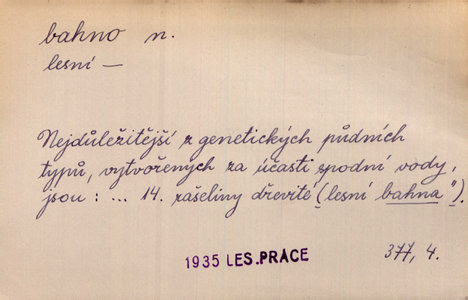 bahno n.
lesní —
Nejdůležitější z genetických půdních
typů, vytvořených za účasti spodní vody,
jsou : ... 14. rašeliny dřevité (lesní bahna").
1935 LES. PRÁCE
377, 4.